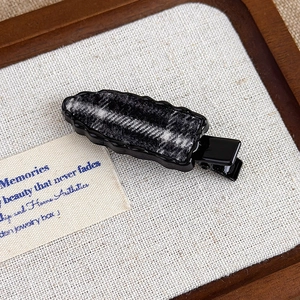 Memories
beauty that never fades
and Home Aesthetics
jewelry box